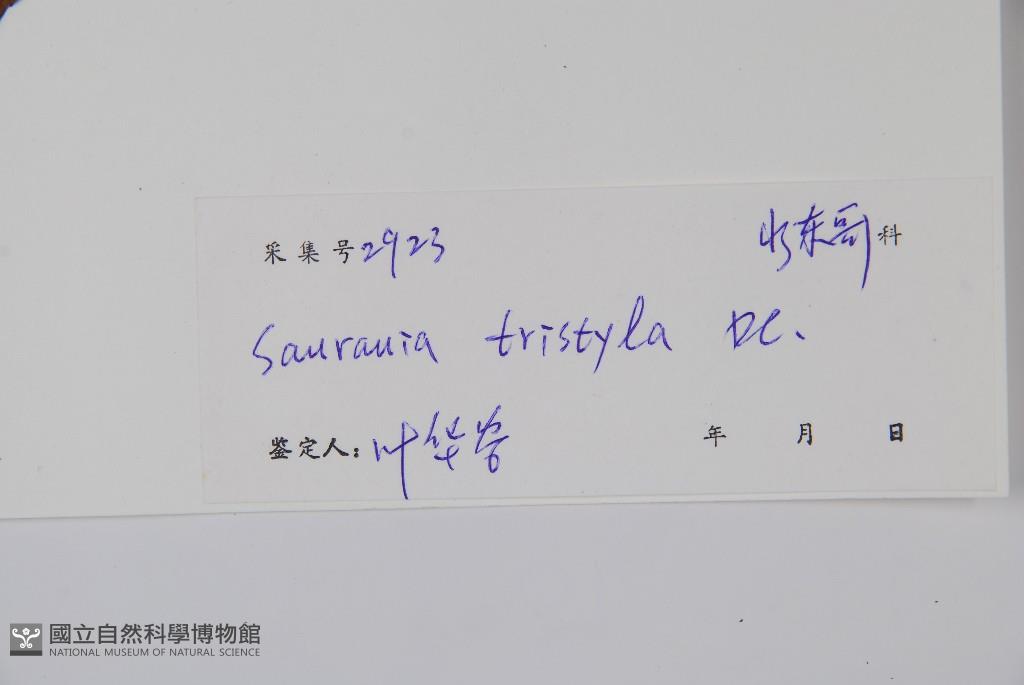 采集号 2923 水东哥科
Saurauia tristyla DC.
鉴定人：叶华谷 年 月 日
國立自然科學博物館
NATIONAL MUSEUM OF NATURAL SCIENCE